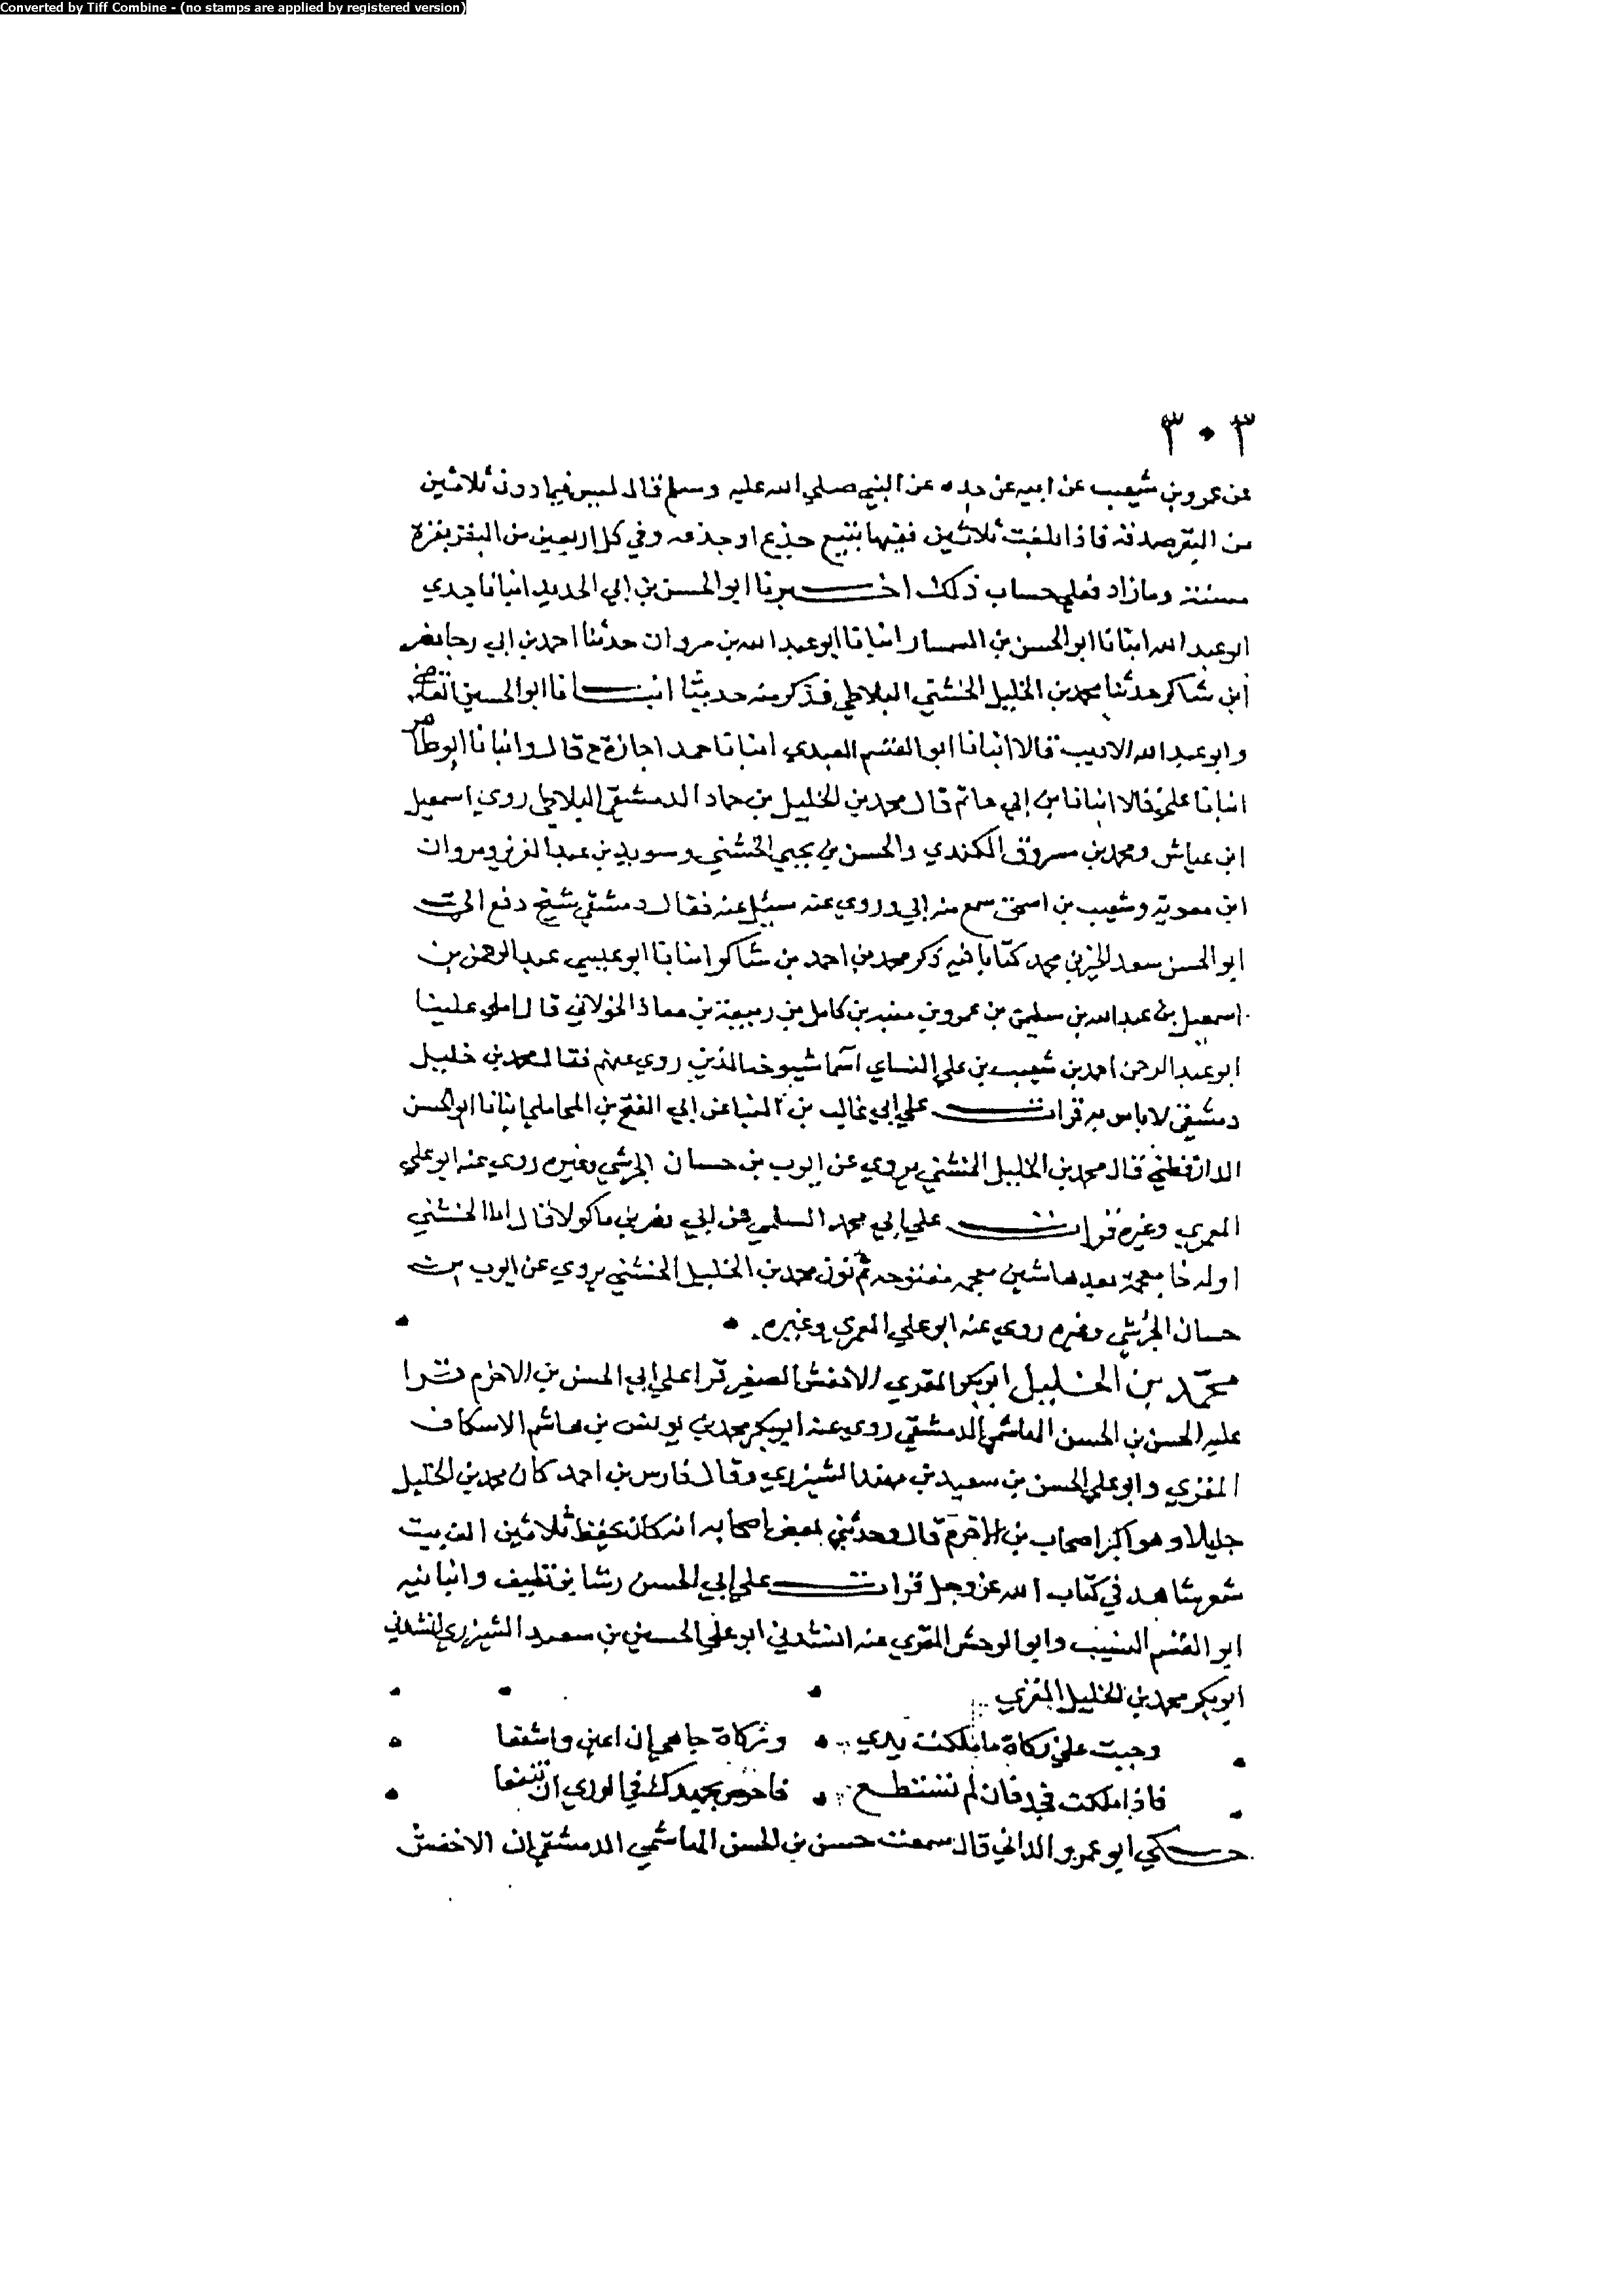 Converted by Tiff Combine - (no stamps are applied by registered version)
٣٠٣
عن عمرو بن شعيب عن ابيه عن جده عن النبي صلي الله عليه وسلم قال ليس فيما دون ثلاثين
من البقر صدقة فاذا بلغت ثلاثين ففيها تبيع جذع او جذعه وفي كل اربعين من البقر بقرة
مسنة وما زاد فعلي حساب ذلك اخبرنا ابو الحسن بن ابي الحديد انبانا جدي
ابو عبد الله انبانا ابو الحسن بن السمسار انبانا ابو عبد الله بن مروان حدثنا احمد بن ابي رجا نصر
ابن شاكر حدثنا محمد بن الخليل الخشني البلاطي فذكر منه حديثا انبانا ابو الحسين القاضي
وابو عبد الله الاديب قالا انبانا ابو القسم العبدي انبانا حمد اجازة ح قال وانبانا ابو طاهر
انبانا علي قالا انبانا بن ابي حاتم قال محمد بن الخليل بن حماد الدمشقي البلاطي روي اسمعيل
ابن عياش ومحمد بن مسروق الكندي والحسن بن يحيي الخشني وسويد بن عبد العزيز ومروان
ابن معوية وشعيب بن اسحق سمع منه ابي وروي عنه سيل عنه فقال دمشقي شيخ دفع الي
ابو الحسن سعد الخير بن محمد كتابا فيه ذكر محمد بن احمد بن شاكر انبانا ابو عيسي عبد الرحمن بن
اسمعيل بن عبد الله بن سليمن بن عمرو بن منبه بن كامل بن ربيعة بن معاذ الخولاني قال املي علينا
ابو عبد الرحمن احمد بن شعيب بن علي النساي اسما شيوخه الذين روي عنهم فقال محمد بن خليل
دمشقي لا باس به قرات علي ابي غالب بن البنا عن ابي الفتح بن المحاملي انبانا ابو الحسن
الدارقطني قال محمد بن الخليل الخشني يروي عن ايوب بن حسان الجرشي وغيره روي عنه ابو علي
المعمري وغيره قرات علي ابي محمد السلمي عن ابي نصر بن ماكولا قال اما الخشني
اوله خا معجمة بعدها شين معجمه مفتوحه ثم نون محمد بن الخليل الخشني يروي عن ايوب بن
حسان الجرشي وغيره روي عنه ابو علي المعمري وغيره
محمد بن الخليل ابو بكر المقري الاخفش الصغير قرا علي ابي الحسن بن الاخرم قرا
عليه الحسن بن الحسن الهاشمي الدمشقي روي عنه ابو بكر محمد بن يونس بن هاشم الاسكاف
المقري وابو علي الحسن بن سعيد بن مهند الشيزري وقال فارس بن احمد كان محمد بن الخليل
جليلا وهو اكبر اصحاب بن الاخرم قال وحدثني بعض اصحابه انه كان يحفظ ثلاثين الف بيت
شعر شاهد في كتاب الله عز وجل قرات علي ابي الحسن رشا بن نظيف وانبانيه
ابو القسم النسيب وابو الوحش المقري عنه انشدني ابو علي الحسين بن سعيد الشيزري انشدني
ابو بكر محمد بن الخليل المقري
وجبت علي زكاة ما ملكت يدي وزكاة جاهي ان اعين واشفعا
فاذا ملكت فجد فان لم تستطع فاحرص بجهدك في الوري ان تنفعا
حكي ابو عمرو الداني قال سمعت حسن بن الحسن الهاشمي الدمشقي ان الاخفش